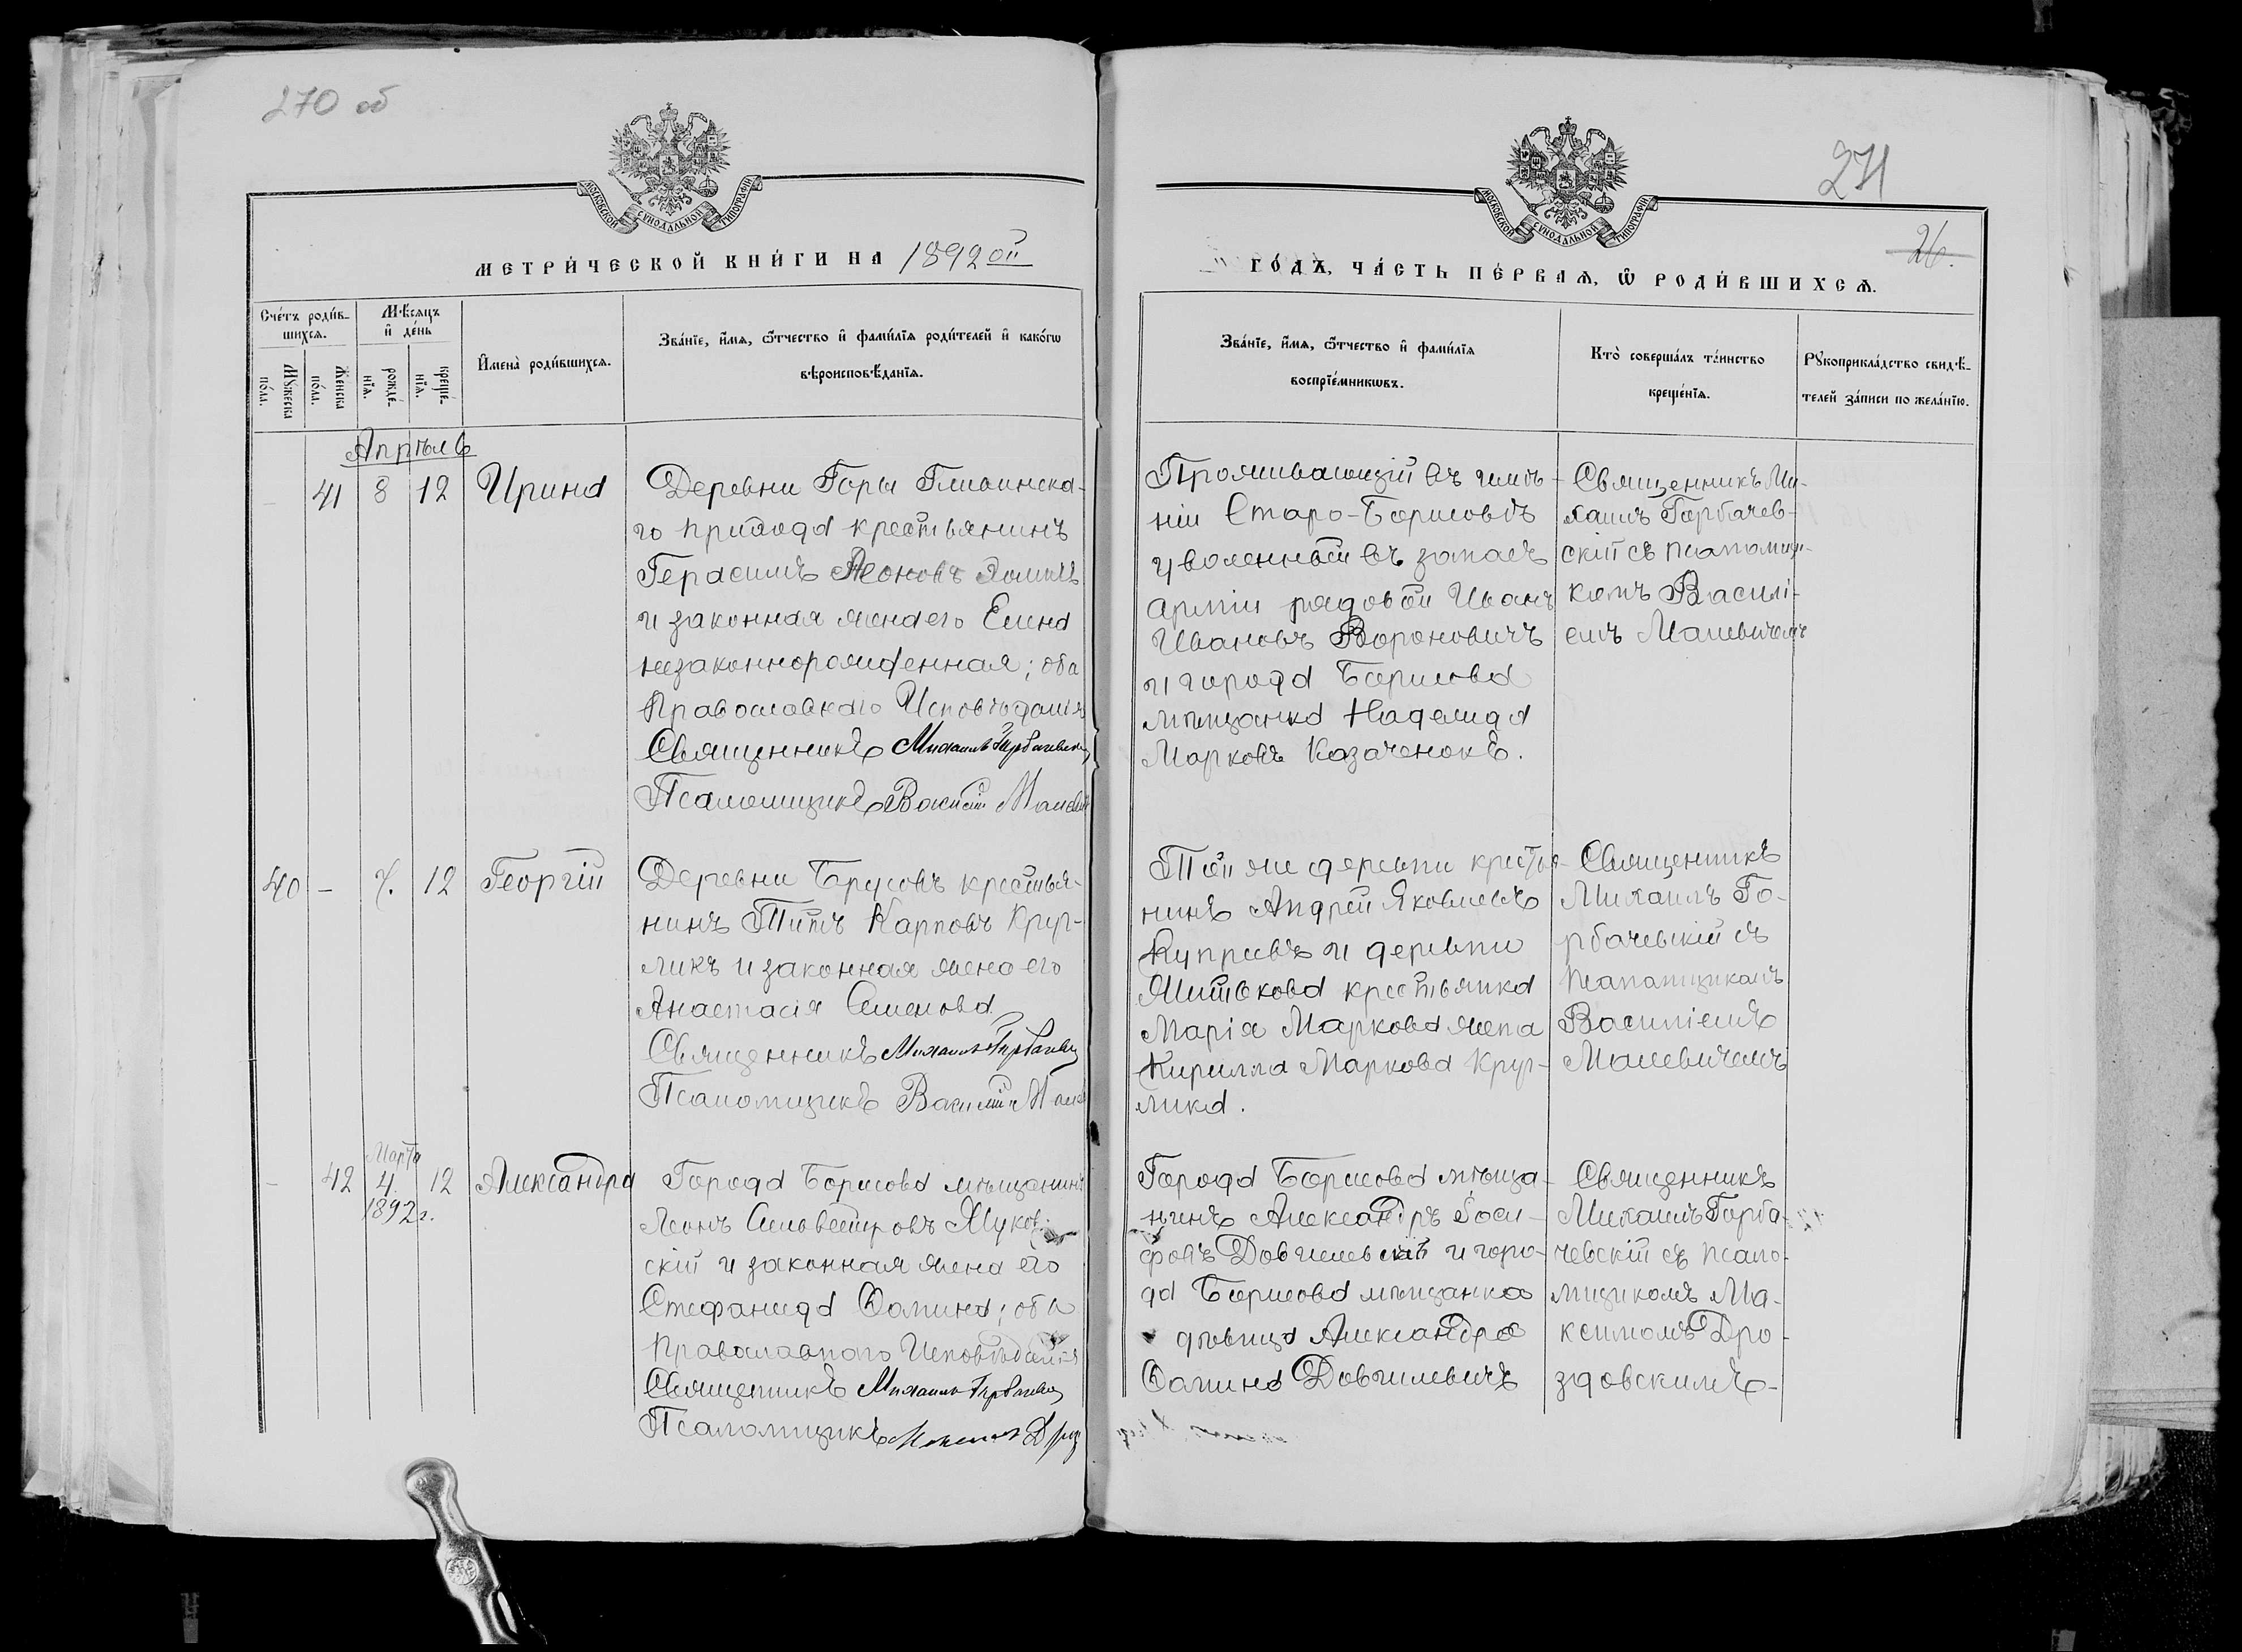 270 об
МОСКОВСКОЙ СУНОДАЛЬНОЙ ТИПОГРАФІИ
МЕТРИ́ЧЕСКОЙ КНИ́ГИ НА 1892 ой
Сче́тъ роди́в-
шихся.
Мѣ́сяцъ
и҆ де́нь
Мꙋ́жеска
по́ла.
Же́нска
по́ла.
рожде́-
нїѧ.
креще́-
нїѧ.
И҆мена̀ роди́вшихсѧ.
Зва́нїе, и҆́мѧ, ѻ҆́тчество и҆ фами́лїѧ роди́телей и҆ како́гѡ
вѣроисповѣ́данїѧ.
Апрѣль
- 41 8 12 Ирина
Деревни Горы Гливинска-
го прихода крестьянинъ
Герасимъ Леоновъ
и законная жена его Елена
незаконнорожденная; оба
Православнаго Исповѣданія
Священникъ Михаилъ Горбачевскій
Псаломщикъ Василій
40 - 7. 12 Георгій
Деревни Брусовъ крестья-
нинъ Титъ Карповъ Круг-
ликъ и законная жена его
Анастасія Семенова
Священникъ Михаилъ Горбачевск
Псаломщикъ Василій
Марта
- 42 4. 12 Александра
1892 г.
Города Борисова мѣщанинъ
Леонъ Сильвестровъ Жуков-
скій и законная жена его
Стефанида Ѳомина; оба
Православнаго Исповѣданія
Священникъ Михаилъ Горбачевск
Псаломщикъ Максимъ Дроз
271
26.
МОСКОВСКОЙ СУНОДАЛЬНОЙ ТИПОГРАФІИ
ГО́ДЪ, ЧА́СТЬ ПЕ́РВАѦ, Ѽ РОДИ́ВШИХСѦ.
Зва́нїе, и҆́мѧ, ѻ҆́тчество и҆ фами́лїѧ
воспрїе́мникѡвъ.
Кто̀ соверша́лъ та́инство
креще́нїѧ.
Рꙋкоприкла́дство свидѣ́-
телей за́писи по жела́нїю.
Проживающій въ имѣ-
ніи Старо-Борисовѣ
уволенный въ запасъ
арміи рядовой Иванъ
Ивановъ Вороновичъ
и города Борисова
мѣщанка Надежда
Маркова Казаченокъ.
Священникъ Ми-
хаилъ Горбачев-
скій съ псаломщи-
комъ Василі-
емъ Малевичемъ
Той же деревни крестья-
нинъ Андрей Яковлевъ
Купреевъ и деревни
Житькова крестьянка
Марія Маркова жена
Кирилла Маркова Круг-
лика.
Священникъ
Михаилъ Го-
рбачевскій съ
псаломщикомъ
Василіемъ
Малевичемъ
Города Борисова мѣща-
нинъ Александръ Іоси-
фовъ Довгилевскій и горо-
да Борисова мѣщанка
дѣвица Александра
Ѳомина Довгилевичъ
Священникъ
Михаилъ Горба-
чевскій съ псало-
мщикомъ Ма-
ксимомъ Дро-
здовскимъ-